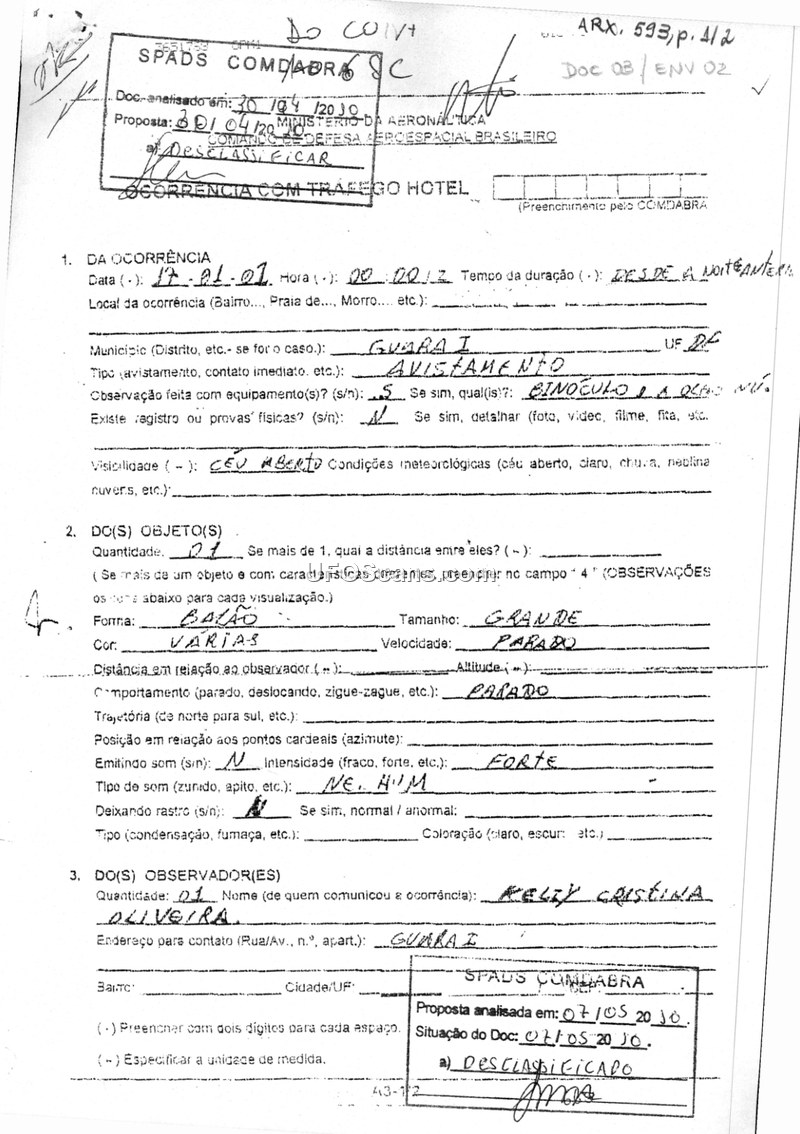 DO
ARX. 593, p. 1/2
DOC 03 / ENV 02
SPADS COMDABRA
Doc. analisado em: 30 /04 /2010
Proposta: 30/04/2010
a) DESCLASSIFICAR
MINISTÉRIO DA AERONÁUTICA
COMANDO DE DEFESA AEROESPACIAL BRASILEIRO
OCORRÊNCIA COM TRÁFEGO HOTEL
(Preenchimento pelo COMDABRA
1. DA OCORRÊNCIA
Data ( - ): 17-01-01 Hora ( - ): 00:00 Tempo da duração ( - ): DESDE A NOITE ANTERI
Local da ocorrência (Bairro..., Praia de..., Morro..., etc.):
Município (Distrito, etc.- se for o caso.): GUARA I UF DF
Tipo (avistamento, contato imediato, etc.): AVISTAMENTO
Observação feita com equipamento(s)? (s/n): S Se sim, qual(is)?: BINÓCULO E A OLHO NÚ.
Existe registro ou provas físicas? (s/n): N Se sim, detalhar (foto, vídeo, filme, fita, etc.
Visibilidade ( ~ ): CÉU ABERTO Condições meteorológicas (céu aberto, claro, chuva, neblina
nuvens, etc.):
2. DO(S) OBJETO(S)
Quantidade: 01 Se mais de 1, qual a distância entre eles? ( ~ ):
( Se mais de um objeto e com características diferentes, preencher no campo " 4 " (OBSERVAÇÕES
UFOScans.com
os itens abaixo para cada visualização.)
Forma: BALÃO Tamanho: GRANDE
Cor: VÁRIAS Velocidade: PARADO
Distância em relação ao observador ( ~ ): Altitude ( ~ ):
Comportamento (parado, deslocando, zigue-zague, etc.): PARADO
Trajetória (de norte para sul, etc.):
Posição em relação aos pontos cardeais (azimute):
Emitindo som (s/n): N Intensidade (fraco, forte, etc.): FORTE
Tipo de som (zunido, apito, etc.): NENHUM
Deixando rastro (s/n): N Se sim, normal / anormal:
Tipo (condensação, fumaça, etc.): Coloração (claro, escuro etc.)
3. DO(S) OBSERVADOR(ES)
Quantidade: 01 Nome (de quem comunicou a ocorrência): KELLY CRISTINA
OLIVEIRA.
Endereço para contato (Rua/Av., n.º, apart.): GUARA I
Bairro: Cidade/UF:
( - ) Preencher com dois dígitos para cada espaço.
( ~ ) Especificar a unidade de medida.
SPADS COMDABRA
Proposta analisada em: 07/05 2010.
Situação do Doc: 07/05 2010.
a) DESCLASSIFICADO
A3-1/2